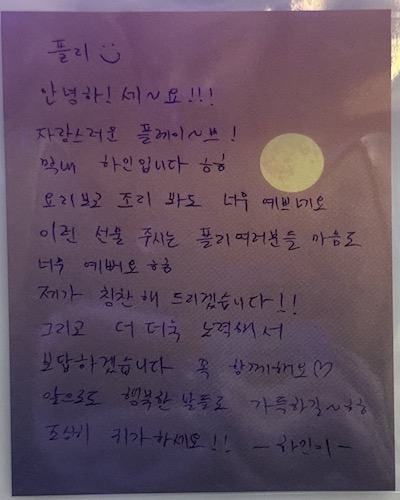 플리 :)
안녕하!세~요!!!
자랑스러운 플레이~브!
막내 하민입니다 ㅎㅎ
요리보고 조리 봐도 너무 예쁘네요
이런 선물 주시는 플리여러분들 마음도
너무 예뻐요 ㅎㅎ
제가 칭찬해 드리겠습니다!!
그리고 더 더욱 노력해서
보답하겠습니다 꼭 함께해요♡
앞으로도 행복한 날들로 가득하길~ㅎㅎ
조심히 귀가하세요!! -하민이-